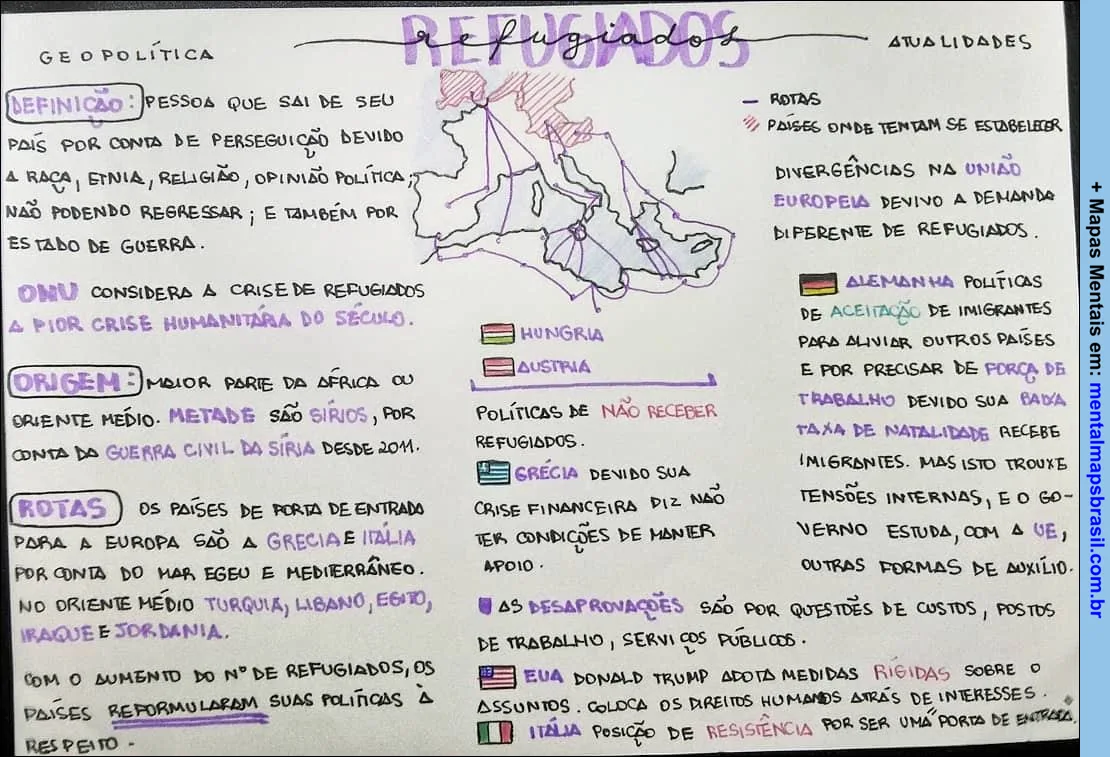 GEOPOLÍTICA
REFUGIADOS
refugiados
ATUALIDADES
DEFINIÇÃO: PESSOA QUE SAI DE SEU
PAÍS POR CONTA DE PERSEGUIÇÃO DEVIDO
A RAÇA, ETNIA, RELIGIÃO, OPINIÃO POLÍTICA,
NÃO PODENDO REGRESSAR; E TAMBÉM POR
ESTADO DE GUERRA.
ONU CONSIDERA A CRISE DE REFUGIADOS
A PIOR CRISE HUMANITÁRIA DO SÉCULO.
ORIGEM: MAIOR PARTE DA ÁFRICA OU
ORIENTE MÉDIO. METADE SÃO SÍRIOS, POR
CONTA DA GUERRA CIVIL DA SÍRIA DESDE 2011.
ROTAS OS PAÍSES DE PORTA DE ENTRADA
PARA A EUROPA SÃO A GRECIA E ITÁLIA
POR CONTA DO MAR EGEU E MEDITERRÂNEO.
NO ORIENTE MÉDIO TURQUIA, LIBANO, EGITO,
IRAQUE E JORDANIA.
COM O AUMENTO DO Nº DE REFUGIADOS, OS
PAÍSES REFORMULARAM SUAS POLÍTICAS À
RESPEITO.
HUNGRIA
AUSTRIA
POLÍTICAS DE NÃO RECEBER
REFUGIADOS.
GRÉCIA DEVIDO SUA
CRISE FINANCEIRA DIZ NÃO
TER CONDIÇÕES DE MANTER
APOIO.
ROTAS
PAÍSES ONDE TENTAM SE ESTABELECER
DIVERGÊNCIAS NA UNIÃO
EUROPEIA DEVIVO A DEMANDA
DIFERENTE DE REFUGIADOS.
ALEMANHA POLÍTICAS
DE ACEITAÇÃO DE IMIGRANTES
PARA ALIVIAR OUTROS PAÍSES
E POR PRECISAR DE FORÇA DE
TRABALHO DEVIDO SUA BAIXA
TAXA DE NATALIDADE RECEBE
IMIGRANTES. MAS ISTO TROUXE
TENSÕES INTERNAS, E O GO-
VERNO ESTUDA, COM A UE,
OUTRAS FORMAS DE AUXÍLIO.
AS DESAPROVAÇÕES SÃO POR QUESTÕES DE CUSTOS, POSTOS
DE TRABALHO, SERVIÇOS PÚBLICOS.
EUA DONALD TRUMP ADOTA MEDIDAS RÍGIDAS SOBRE O
ASSUNTOS. COLOCA OS DIREITOS HUMANOS ATRÁS DE INTERESSES.
ITÁLIA POSIÇÃO DE RESISTÊNCIA POR SER UMA "PORTA DE ENTRADA.
+ Mapas Mentais em: mentalmapsbrasil.com.br